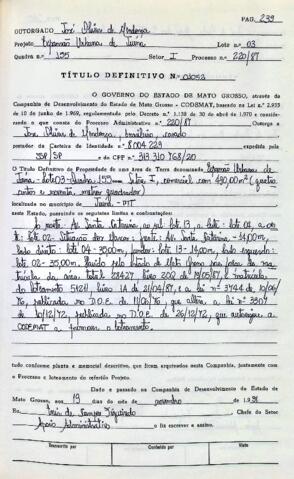 PAG. 239
OUTORGADO José Chiéas de Mendonza
Projeto Expansão Urbana de Juína Lote n.o 03
Quadra n.o 155 Setor I Processo n.o 220/87
TÍTULO DEFINITIVO N.o
O GOVERNO DO ESTADO DE MATO GROSSO, através da
Companhia de Desenvolvimento do Estado de Mato Grosso - CODEMAT, baseado na Lei n.o 2.935
de 10 de junho de 1969, regulamentado pelo Decreto n.o 1.138 de 30 de abril de 1970 e considerando
o que consta do Processo Administrativo n.o 220/87 Outorga a
José de Mendonza, brasileiro, casado
portador da Carteira de Identidade n.o 8004229 expedida por
SSP/SP e do CPF n.o 313310768/20
o Título Definitivo de Propriedade de uma Área de Terra denominada Expansão Urbana de
Juína - Lote 03 - Quadra 155 - Setor I, comercial com 490,00m² (quatro
centos e noventa metros quadrados)
localizada no município de Juína - MT
neste Estado, possuindo os seguintes limites e confrontações:
Ao norte: Av. Santa Catarina, ao sul lote 13, a leste: lote 04, a oeste:
lote 02. Situação dos Marcos: frente: Av. Santa Catarina - 14,00m,
lado direito: lote 04 - 35,00m, fundos: lote 13 - 14,00m, lado esquerdo:
lote 02 - 35,00m. pelo Estado de Mato Grosso
da área, total 28427 livro 202 de 19/05/87, e matrícula
do loteamento 51211, livro 1A de 21/04/87, e a Lei nº 3744 de 10/06/
76, publicada no D.O.E. de 11/06/76, que altera a Lei nº 3307 de
10/12/72, publicada no D.O.E. de 26/12/72, que autorizou a
CODEMAT a promover o loteamento.
tudo conforme planta e memorial descritivo, que ficam arquivados nesta Companhia, juntamente com
o Processo e loteamento do referido Projeto.
Dado e passado na Companhia de Desenvolvimento do Estado de
Mato Grosso, aos 19 dias do mês de novembro de 1.991
Eu, de Campos Figueiredo Chefe do Setor
Apoio Administrativo o fiz escrever e assino.
Transcrito por Conferido por Visto